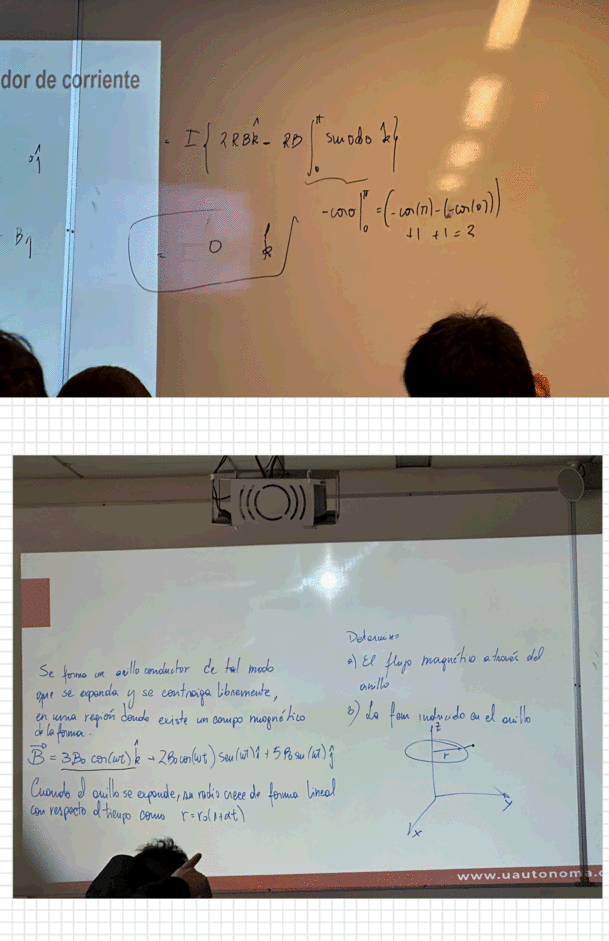 dor de corriente
= I{2RBk̂ - RB∫₀^π senθdθ k̂}
-cosθ|₀^π = (-cos(π)-(-cos(0)))
+1 +1 = 2
= 0 k̂
Se forma un anillo conductor de tal modo
que se expanda y se contraiga libremente,
en una región donde existe un campo magnético
de la forma.
B⃗ = 3B₀ cos(ωt) k̂ + 2B₀ cos(ωt) sen(ωt) î + 5B₀ sen(ωt) ĵ
Cuando el anillo se expande, su radio crece de forma lineal
con respecto al tiempo como r=r₀(1+αt)
Determine
a) El flujo magnético a través del
anillo
b) La fem inducida en el anillo
z
r
y
x
www.uautonoma.c